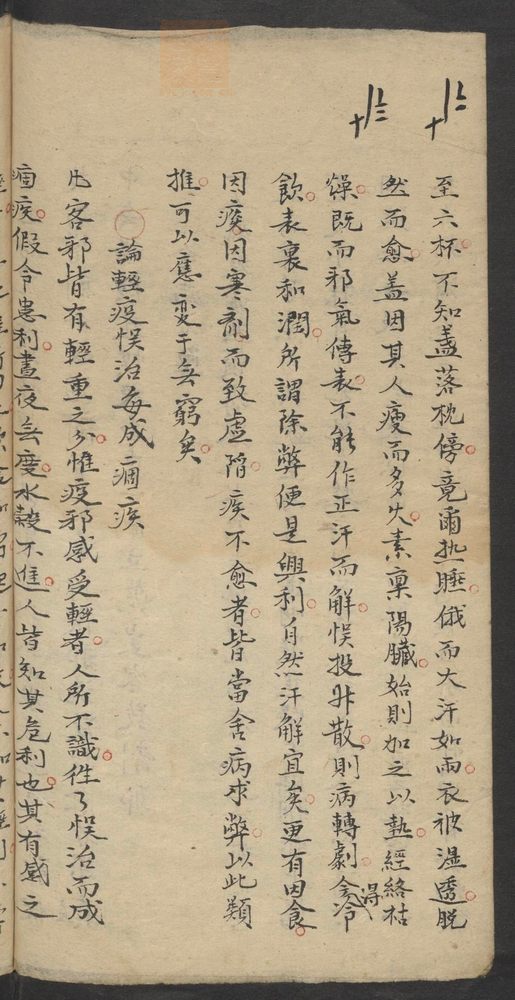 至六杯不知盞落枕傍竟爾热睡俄而大汗如雨衣被湿透脱
然而愈盖因其人瘦而多火素稟陽臓始則加之以熱經絡枯
燥既而邪氣傳表不能作正汗而解悮投升散則病轉劇今得冷
飲表裏和潤所謂除弊便是興利自然汗解宜矣更有因食
因痰因寒剤而致虛陷疾不愈者皆當舍病求弊以此類
推可以應变于無窮矣
論輕疫悮治每成痼疾
凡客邪皆有輕重之分惟疫邪感受輕者人所不識徃々悮治而成
痼疾假令患利晝夜無度水穀不進人皆知其危利也其有感之